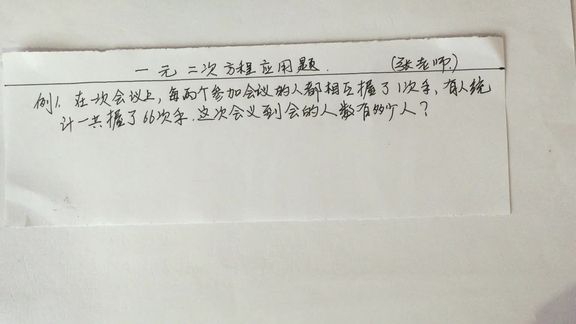 一元二次方程应用题. (张老师)
例1. 在一次会议上,每两个参加会议的人都相互握了1次手,有人统
计一共握了66次手.这次会义到会的人数有多少人?